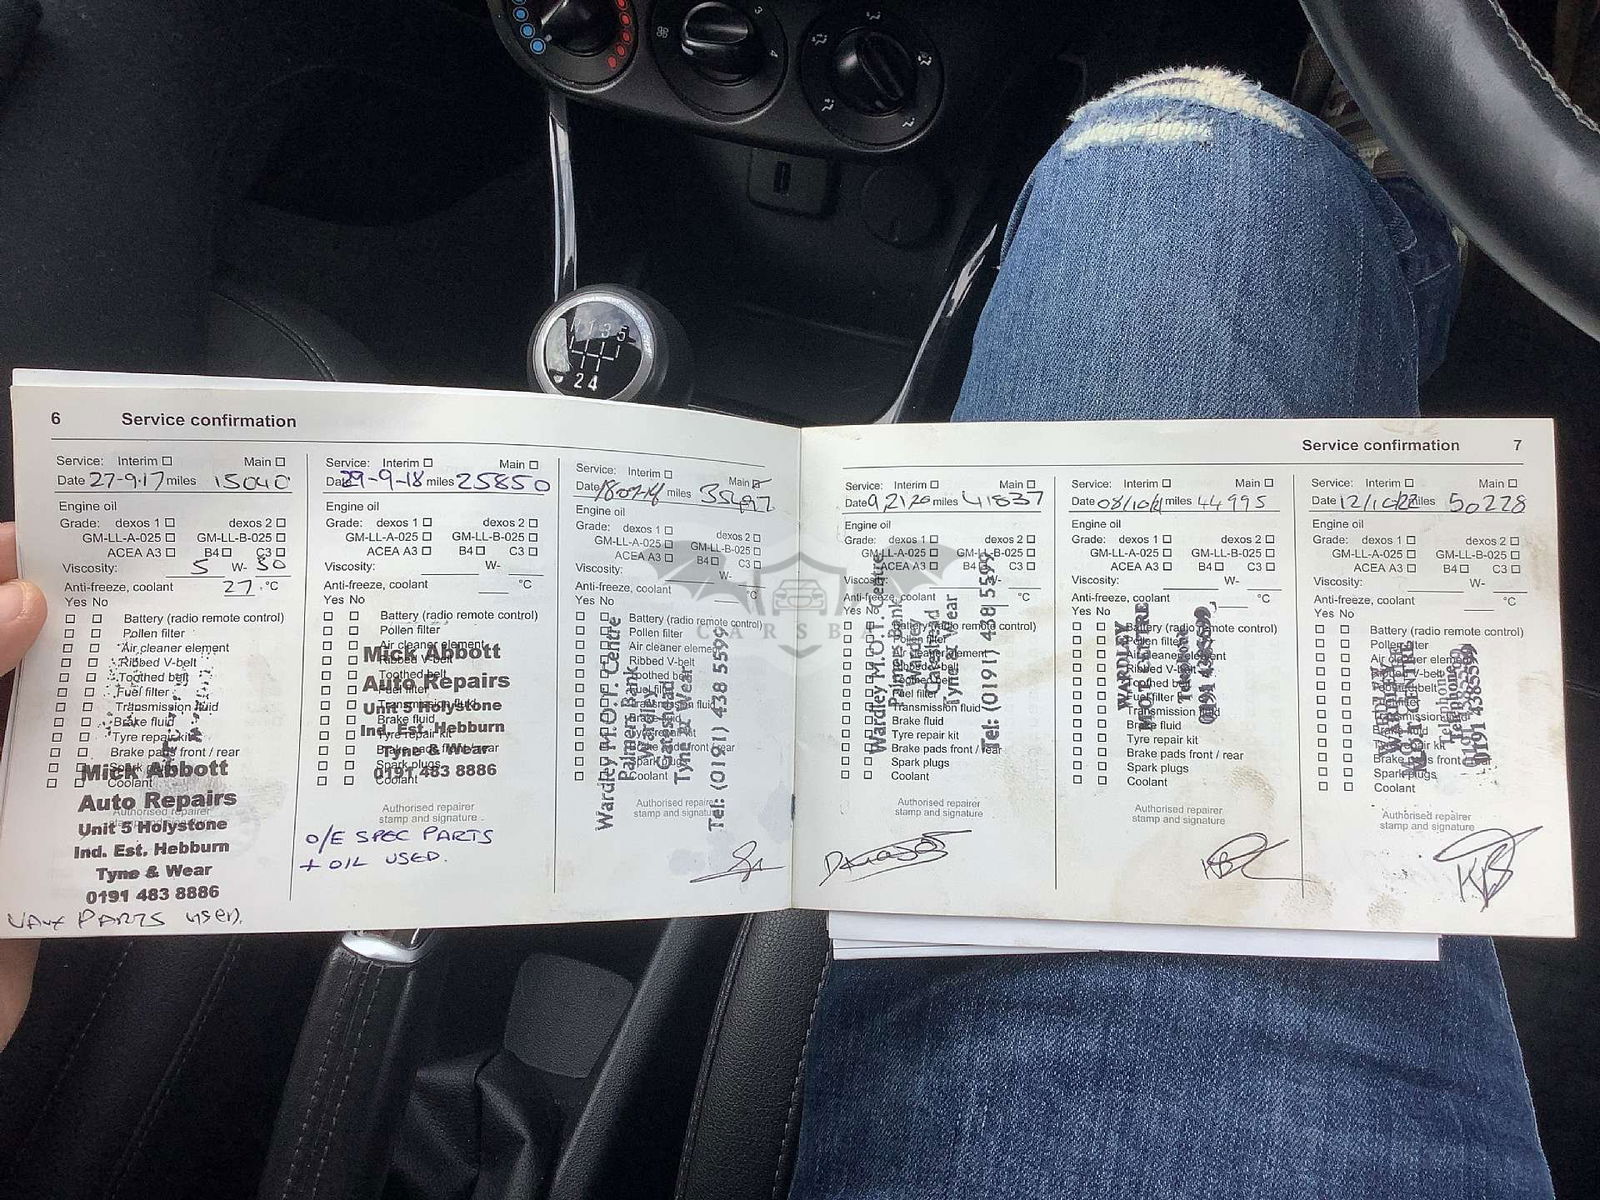 3
4
R 1 3 5
2 4
6 Service confirmation
Service: Interim Main
Date 27-9-17 miles 15040
Engine oil
Grade: dexos 1 dexos 2
GM-LL-A-025 GM-LL-B-025
ACEA A3 B4 C3
Viscosity: 5 W- 30
Anti-freeze, coolant 27 °C
Yes No
Battery (radio remote control)
Pollen filter
Air cleaner element
Ribbed V-belt
Toothed belt
Fuel filter
Transmission fluid
Brake fluid
Tyre repair kit
Brake pads front / rear
Spark plugs
Coolant
Mick Abbott
Auto Repairs
Authorised repairer
Unit 5 Holystone
Ind. Est. Hebburn
Tyne & Wear
0191 483 8886
VAUX PARTS USED.
Service: Interim Main
Date 29-9-18 miles 25850
Engine oil
Grade: dexos 1 dexos 2
GM-LL-A-025 GM-LL-B-025
ACEA A3 B4 C3
Viscosity: W-
Anti-freeze, coolant °C
Yes No
Battery (radio remote control)
Pollen filter
Air cleaner element
Ribbed V-belt
Toothed belt
Fuel filter
Transmission fluid
Brake fluid
Tyre repair kit
Brake pads front / rear
Spark plugs
Coolant
Mick Abbott
Auto Repairs
Unit 5 Holystone
Ind. Est. Hebburn
Tyne & Wear
0191 483 8886
Authorised repairer
stamp and signature
O/E SPEC PARTS
+ OIL USED.
Service: Interim Main
Date miles
Engine oil
Grade: dexos 1 dexos 2
GM-LL-A-025 GM-LL-B-025
ACEA A3 B4 C3
W-
°C
Yes No
Battery (radio remote control)
Pollen filter
Air cleaner element
Ribbed V-belt
Toothed belt
Fuel filter
Transmission fluid
Brake fluid
Tyre repair kit
Brake pads front / rear
Spark plugs
Coolant
Wardley M.O.T. Centre
Palmers Bank
Wardley
Gateshead
Tyne & Wear
Tel: (0191) 438 5599
Authorised repairer
stamp and signature
Service confirmation 7
Service: Interim Main
Date 9/2/20 miles 41837
Engine oil
Grade: dexos 1 dexos 2
GM-LL-A-025 GM-LL-B-025
ACEA A3 B4 C3
Viscosity: W-
Anti-freeze, coolant °C
Yes No
Battery (radio remote control)
Pollen filter
Air cleaner element
Ribbed V-belt
Toothed belt
Fuel filter
Transmission fluid
Brake fluid
Tyre repair kit
Brake pads front / rear
Spark plugs
Coolant
Wardley M.O.T. Centre
Palmers Bank
Wardley
Gateshead
Tyne & Wear
Tel: (0191) 438 5599
Authorised repairer
stamp and signature
Service: Interim Main
Date 08/10/21 miles 44995
Engine oil
Grade: dexos 1 dexos 2
GM-LL-A-025 GM-LL-B-025
ACEA A3 B4 C3
Viscosity: W-
Anti-freeze, coolant °C
Yes No
Battery (radio remote control)
Pollen filter
Air cleaner element
Ribbed V-belt
Toothed belt
Fuel filter
Transmission fluid
Brake fluid
Tyre repair kit
Brake pads front / rear
Spark plugs
Coolant
WARDLEY
MOT CENTRE
Telephone
0191 4385599
Authorised repairer
stamp and signature
Service: Interim Main
Date 12/10/22 miles 50228
Engine oil
Grade: dexos 1 dexos 2
GM-LL-A-025 GM-LL-B-025
ACEA A3 B4 C3
Viscosity: W-
Anti-freeze, coolant °C
Yes No
Battery (radio remote control)
Pollen filter
Air cleaner element
Ribbed V-belt
Toothed belt
Fuel filter
Transmission fluid
Brake fluid
Tyre repair kit
Brake pads front / rear
Spark plugs
Coolant
WARDLEY
MOT CENTRE
Telephone
0191 4385599
Authorised repairer
stamp and signature